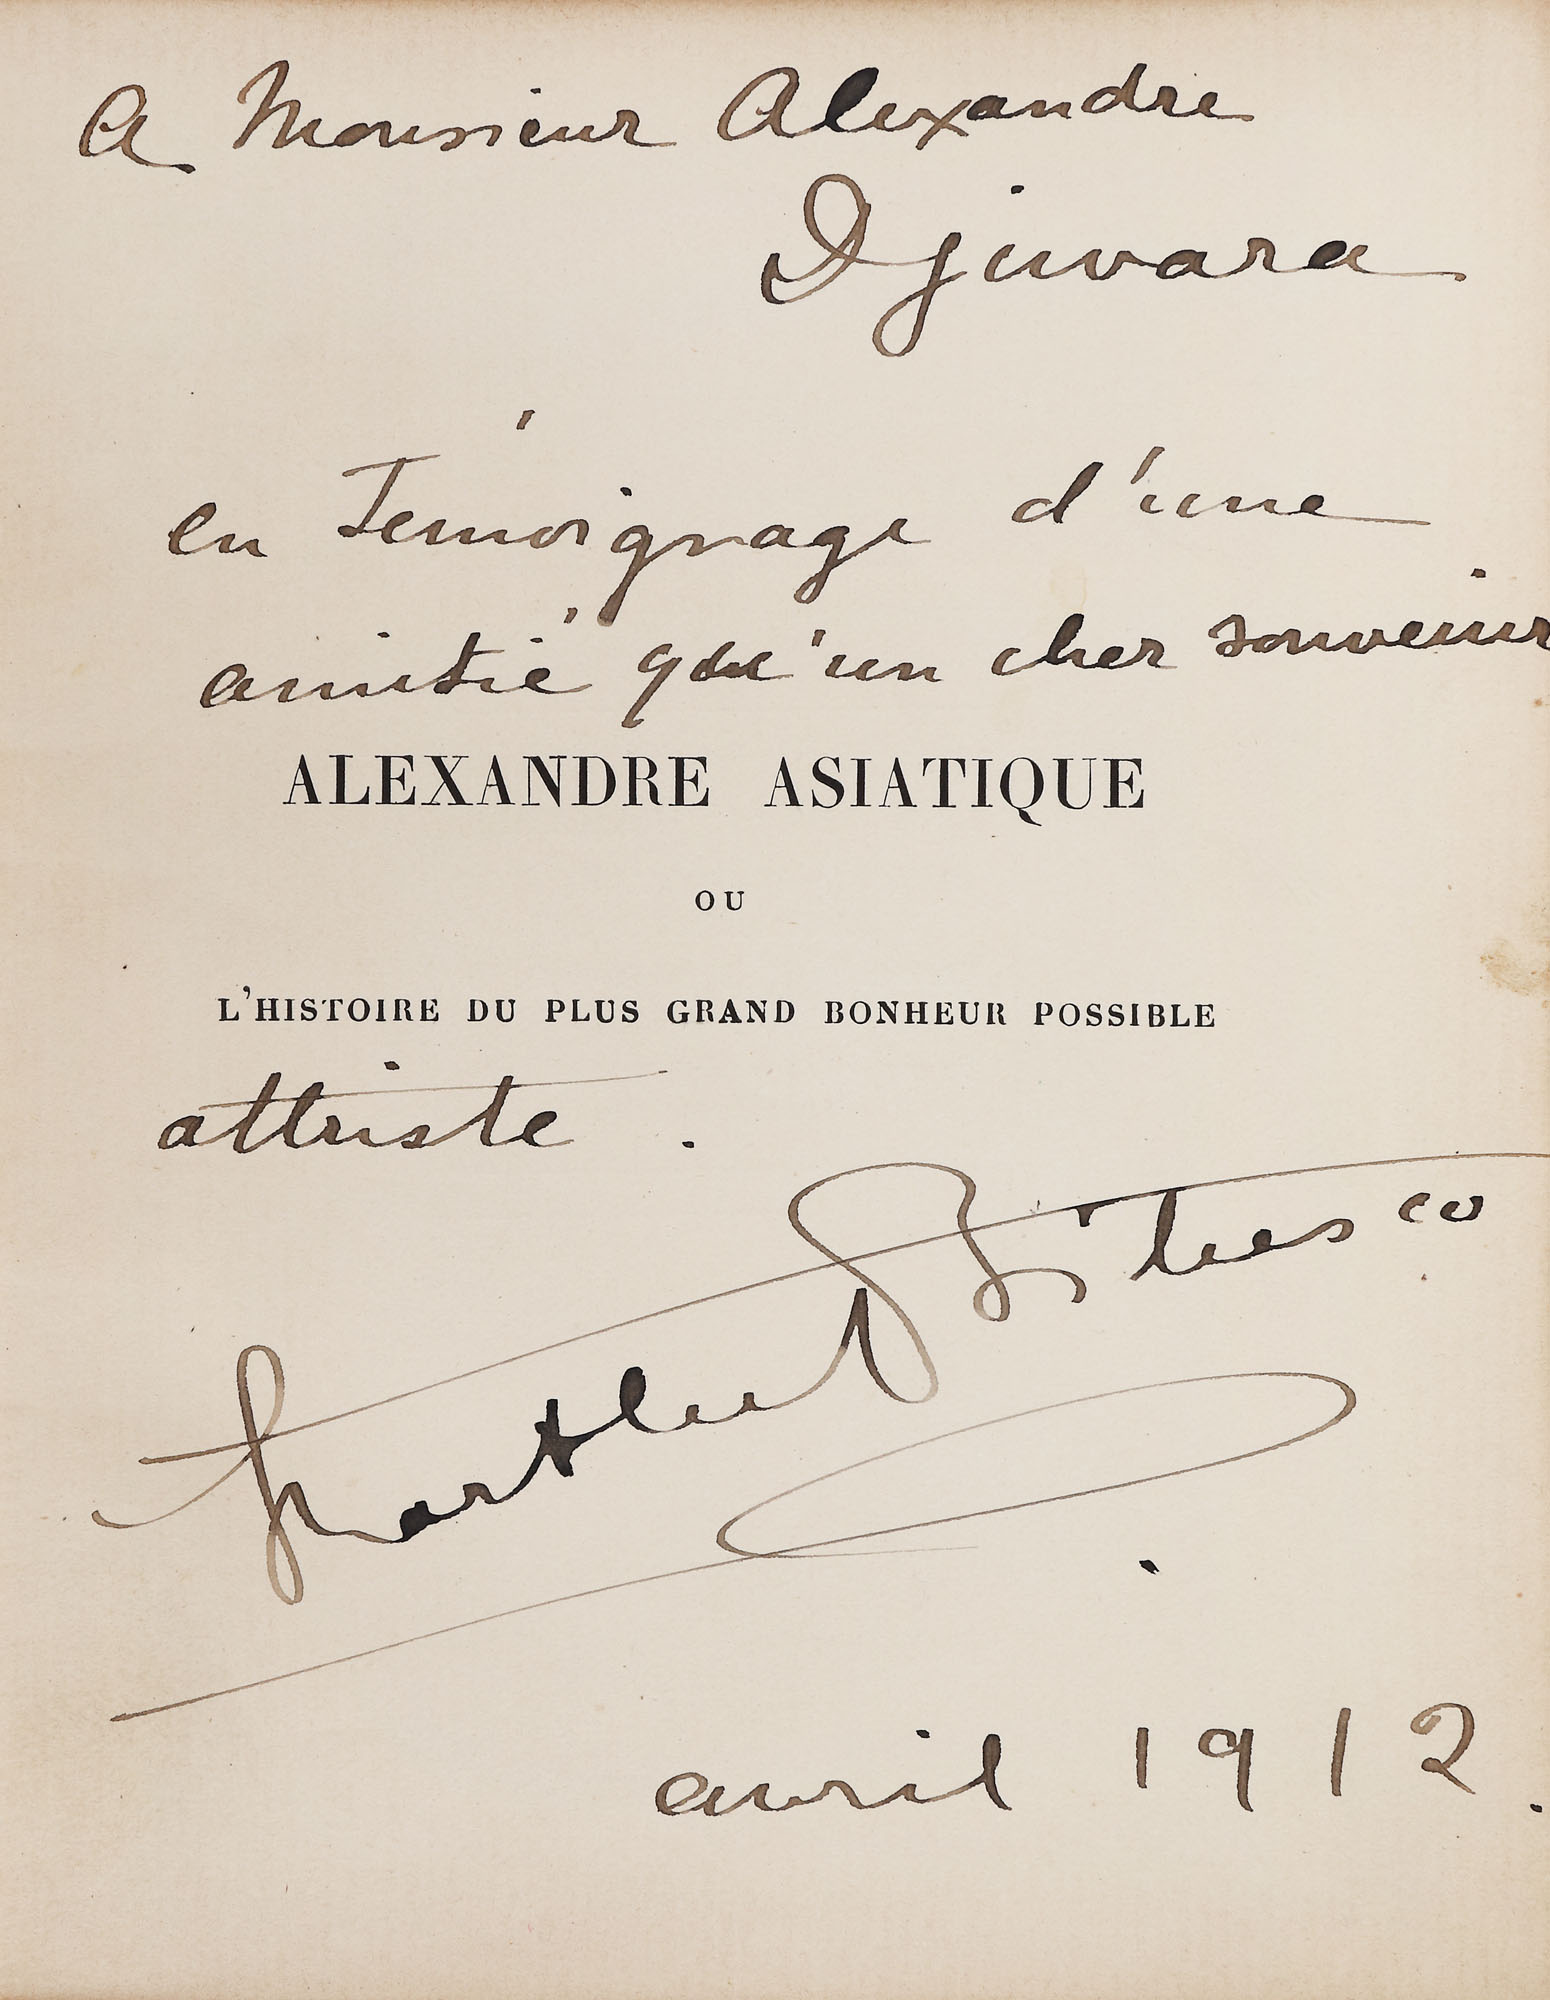 A Monsieur Alexandre
Djuvara
en témoignage d'une
amitié qu'un cher souvenir
ALEXANDRE ASIATIQUE
OU
L'HISTOIRE DU PLUS GRAND BONHEUR POSSIBLE
attriste.
Marthe Bibesco
avril 1912.